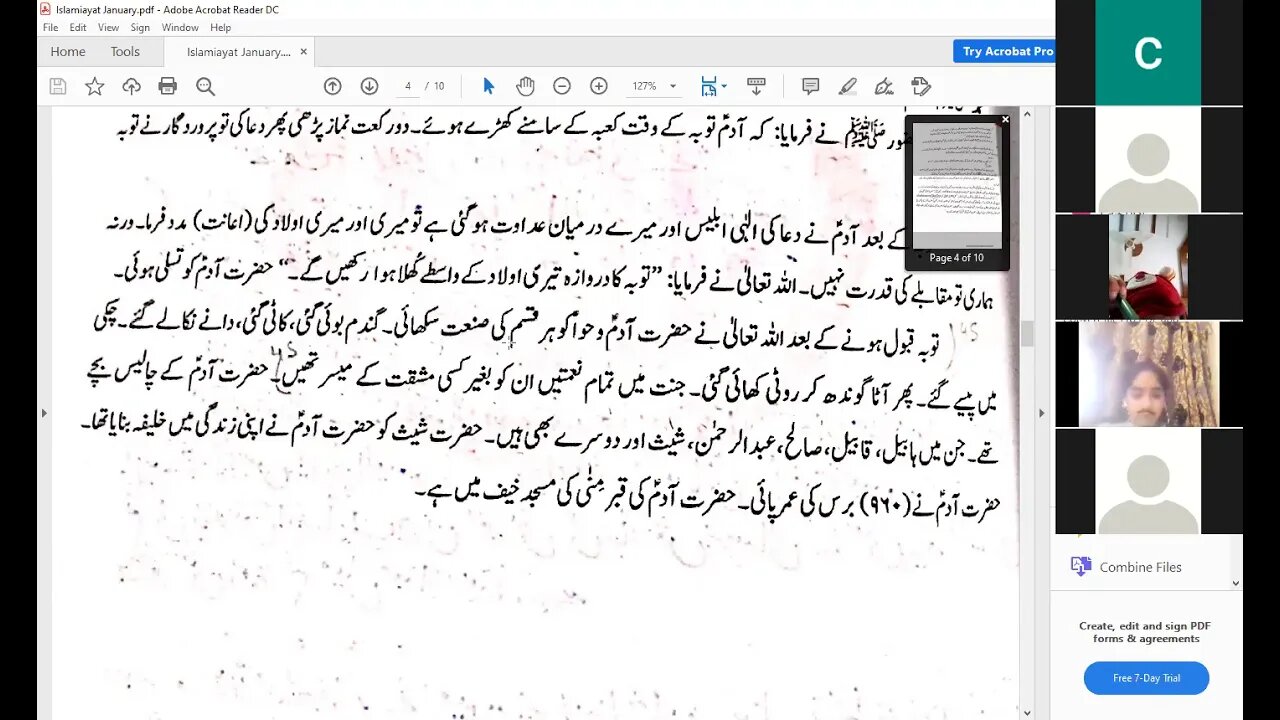 Islamiayat January.pdf - Adobe Acrobat Reader DC
File Edit View Sign Window Help
Home Tools Islamiayat January.... ×
Try Acrobat Pro
4 / 10 127%
نے فرمایا: کہ آدمؑ توبہ کے وقت کعبہ کے سامنے کھڑے ہوئے۔ دو رکعت نماز پڑھی پھر دعا کی تو پروردگار نے توبہ
کے بعد آدمؑ نے دعا کی الٰہی ابلیس اور میرے درمیان عداوت ہو گئی ہے تو میری اور میری اولاد کی (اعانت) مدد فرما۔ ورنہ
ہماری تو مقابلے کی قدرت نہیں۔ اللہ تعالیٰ نے فرمایا: ”توبہ کا دروازہ تیری اولاد کے واسطے کُھلا ہوا رکھیں گے۔“ حضرت آدمؑ کو تسلی ہوئی۔
توبہ قبول ہونے کے بعد اللہ تعالیٰ نے حضرت آدمؑ و حوا کو ہر قسم کی صنعت سکھائی۔ گندم بوئی گئی، کاٹی گئی، دانے نکالے گئے۔ چکی
میں پیسے گئے۔ پھر آٹا گوندھ کر روٹی کھائی گئی۔ جنت میں تمام نعمتیں ان کو بغیر کسی مشقت کے میسر تھیں۔ حضرت آدمؑ کے چالیس بچے
تھے۔ جن میں ہابیل، قابیل، صالح، عبدالرحمٰن، شیث اور دوسرے بھی ہیں۔ حضرت شیث کو حضرت آدمؑ نے اپنی زندگی میں خلیفہ بنایا تھا۔
حضرت آدمؑ نے (۹۶۰) برس کی عمر پائی۔ حضرت آدمؑ کی قبر مِنٰی کی مسجد خیف میں ہے۔
Page 4 of 10
C
Combine Files
Create, edit and sign PDF
forms & agreements
Free 7-Day Trial